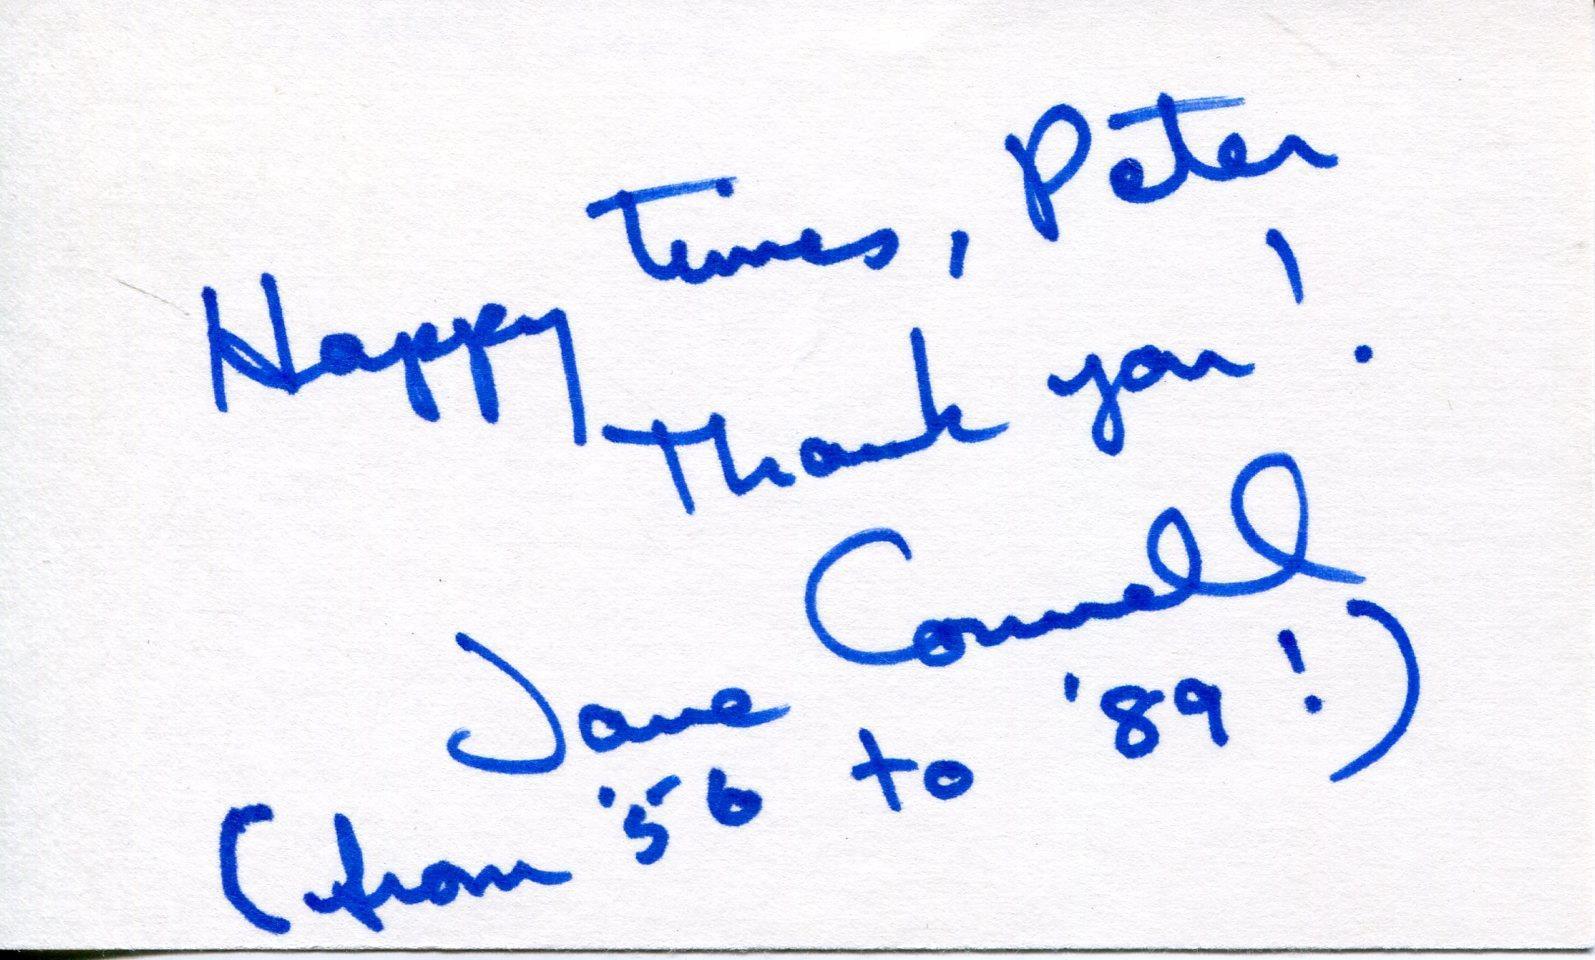 Happy Times, Peter
Thank you!
Jane Connell
(from '56 to '89!)